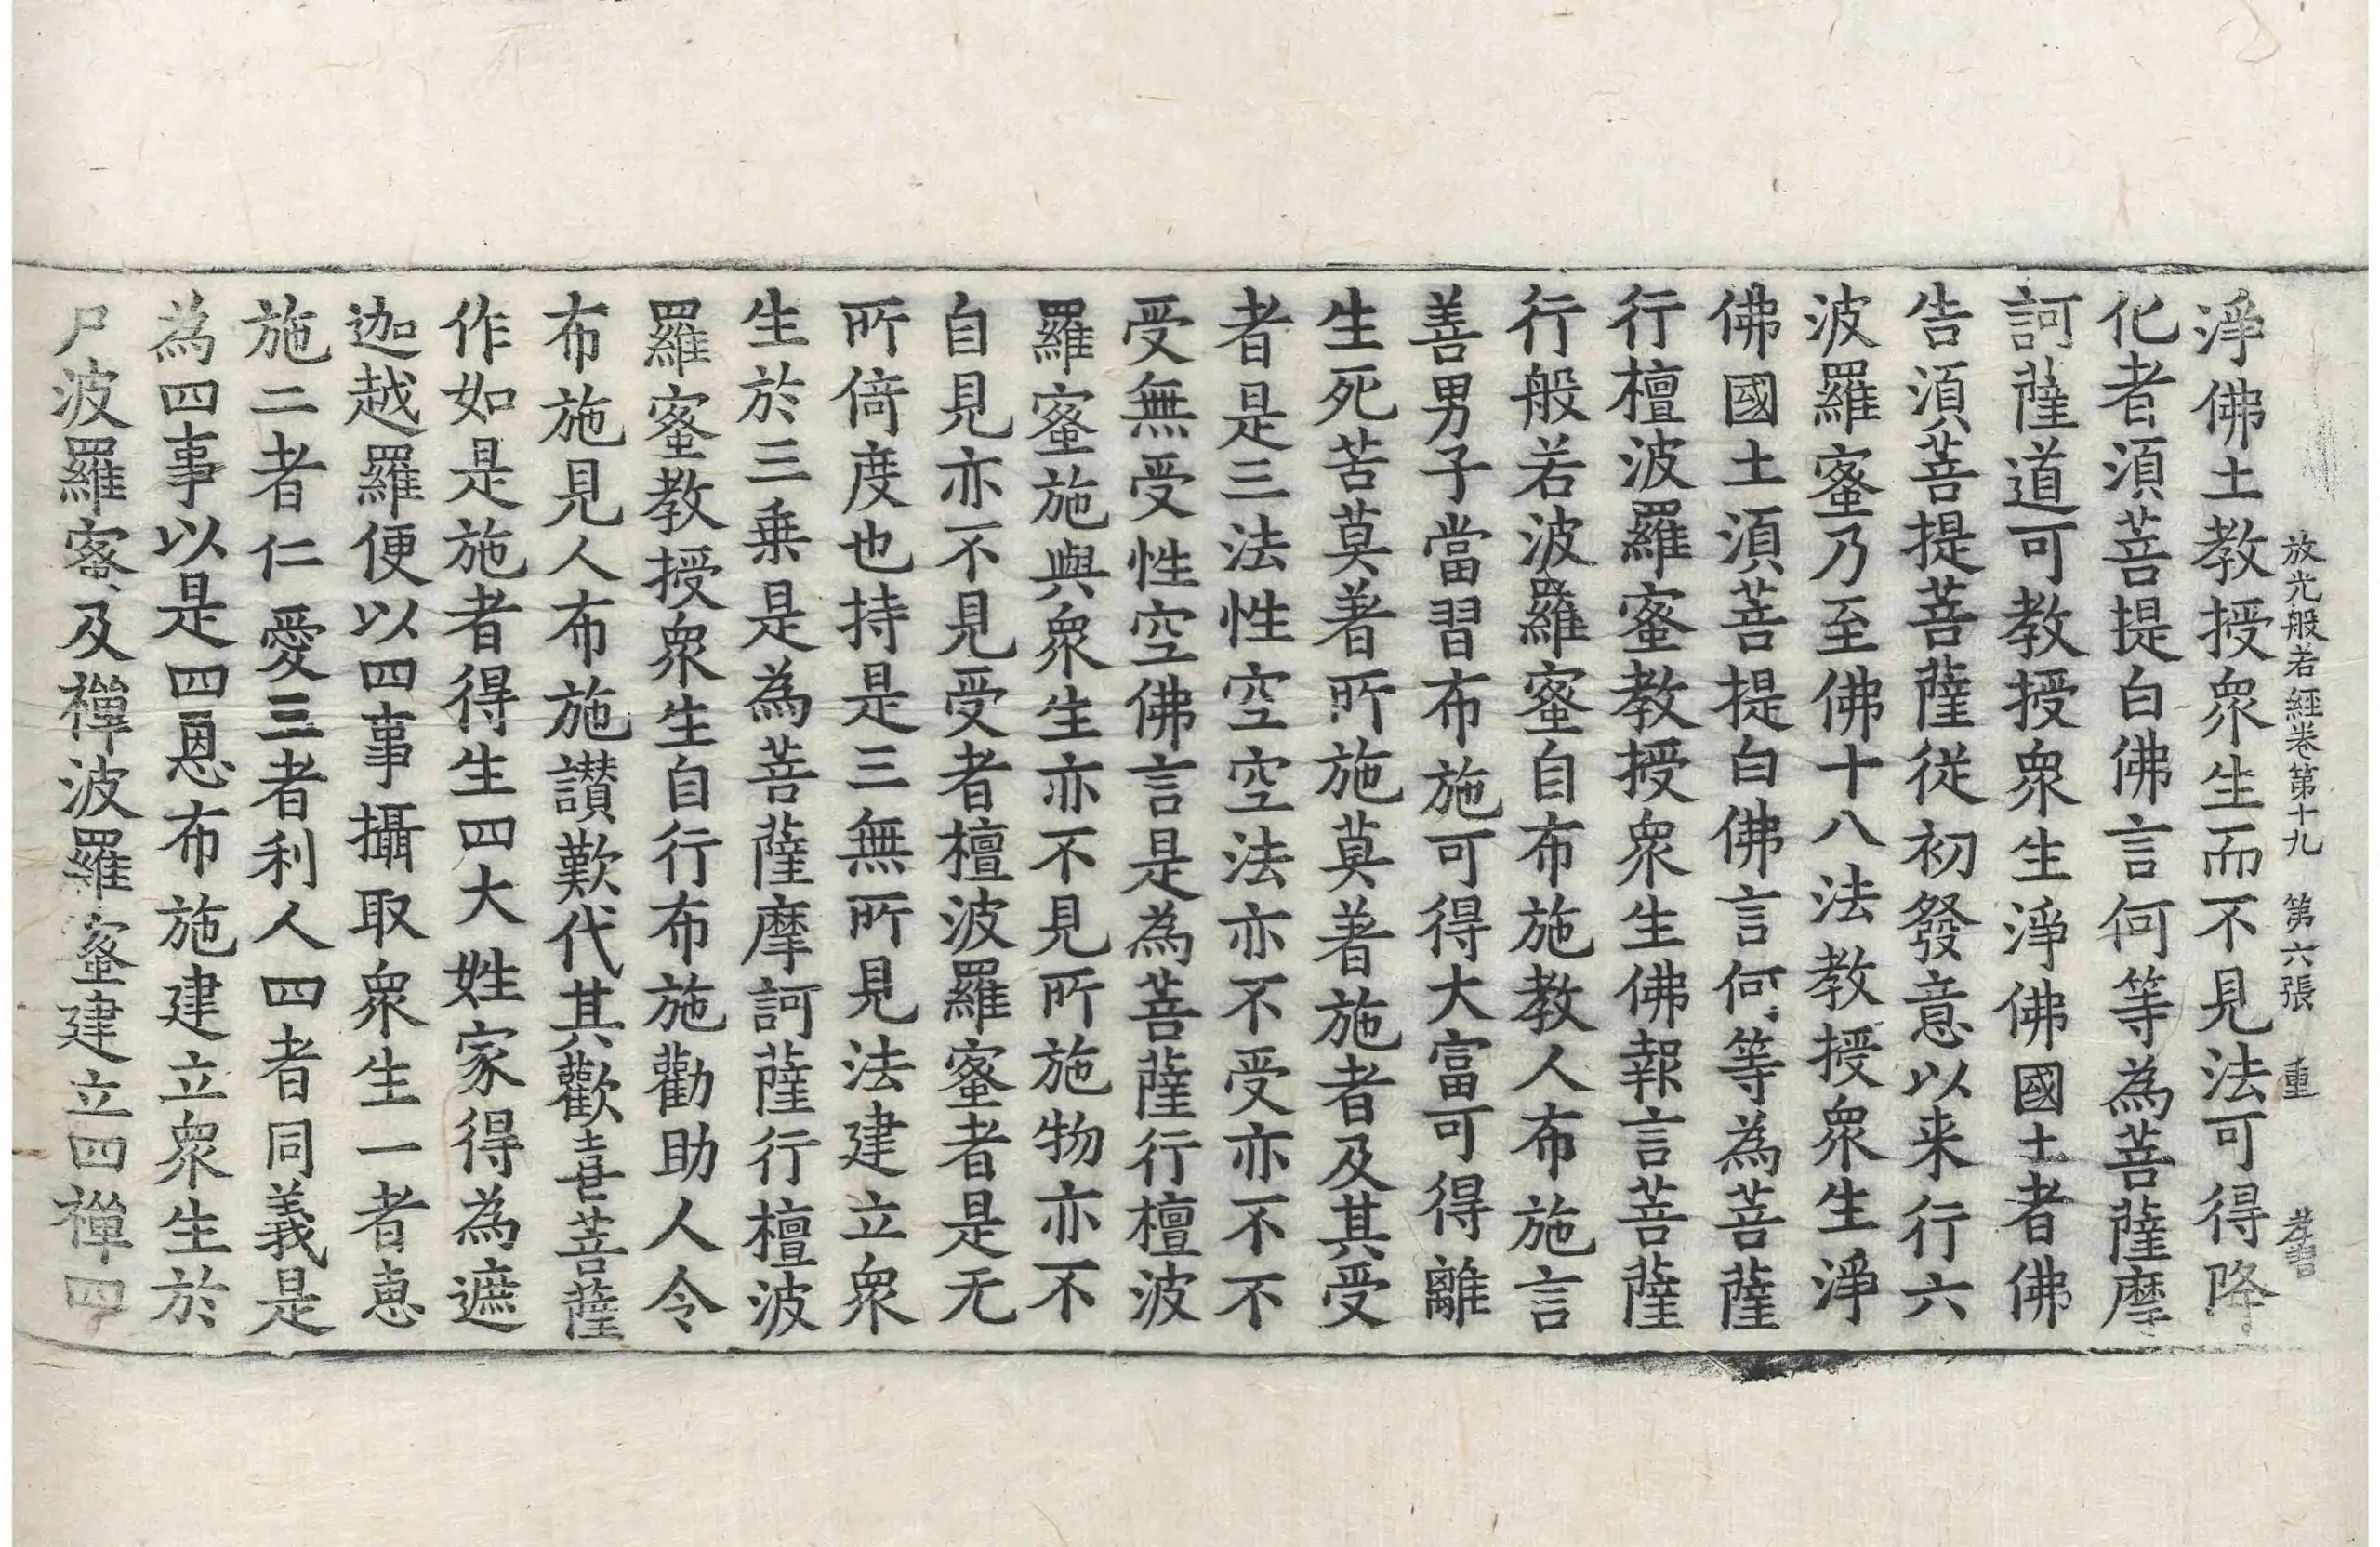 放光般若經卷第十九 第六張 重
淨佛土教授衆生而不見法可得降
化者湏菩提白佛言何等為菩薩摩
訶薩道可教授衆生淨佛國土者佛
告湏菩提菩薩從初發意以来行六
波羅蜜乃至佛十八法教授衆生淨
佛國土湏菩提白佛言何等為菩薩
行檀波羅蜜教授衆生佛報言菩薩
行般若波羅蜜自布施教人布施言
善男子當習布施可得大富可得離
生死苦莫著所施莫著施者及其受
者是三法性空空法亦不受亦不不
受無受性空佛言是為菩薩行檀波
羅蜜施與衆生亦不見所施物亦不
自見亦不見受者檀波羅蜜者是无
所倚度也持是三無所見法建立衆
生於三乗是為菩薩摩訶薩行檀波
羅蜜教授衆生自行布施勸助人令
布施見人布施讃歎代其歡喜菩薩
作如是施者得生四大姓家得為遮
迦越羅便以四事攝取衆生一者惠
施二者仁愛三者利人四者同義是
為四事以是四恩布施建立衆生於
尸波羅蜜及禪波羅蜜建立四禪四